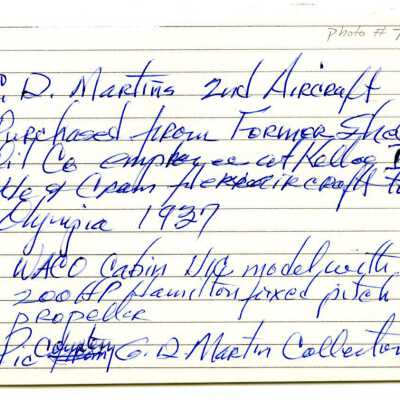 Photo # 7
. D. Martins 2nd Aircraft
Purchased from Former She
Oil Co employee at Kellog
& Cram aircraft F
Olympia 1937
WACO Cabin UIC model with
200 HP Hamilton fixed pitch
propeller
Pic Courtesy G. D Martin Collection